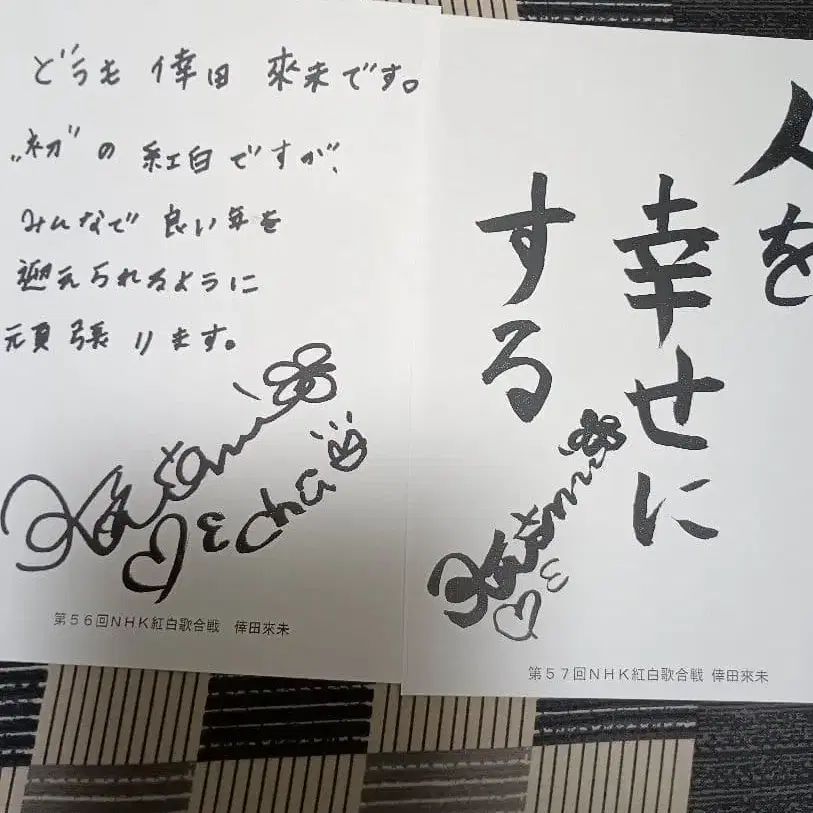 どうも 倖田 來未です。
"初"の 紅白ですが、
みんなで 良い年を
迎えられるように
頑張ります。
第56回NHK紅白歌合戦 倖田來未
人を
幸せに
する
第57回NHK紅白歌合戦 倖田來未